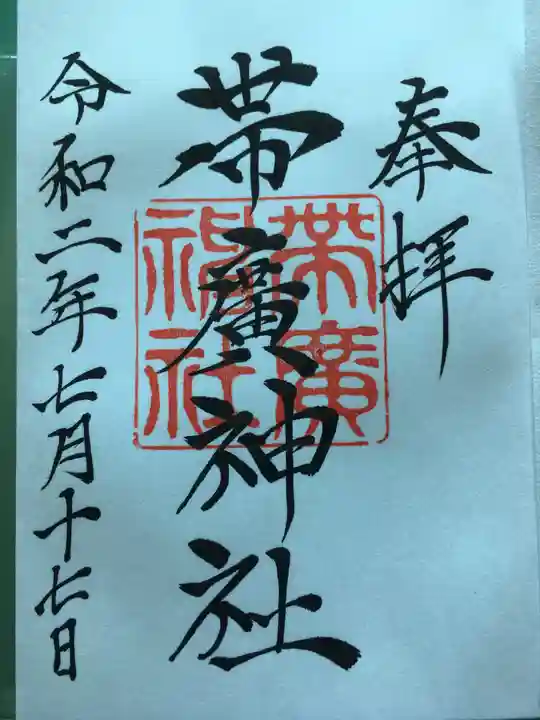 奉拝
帯廣神社
帯廣神社
令和二年七月十七日